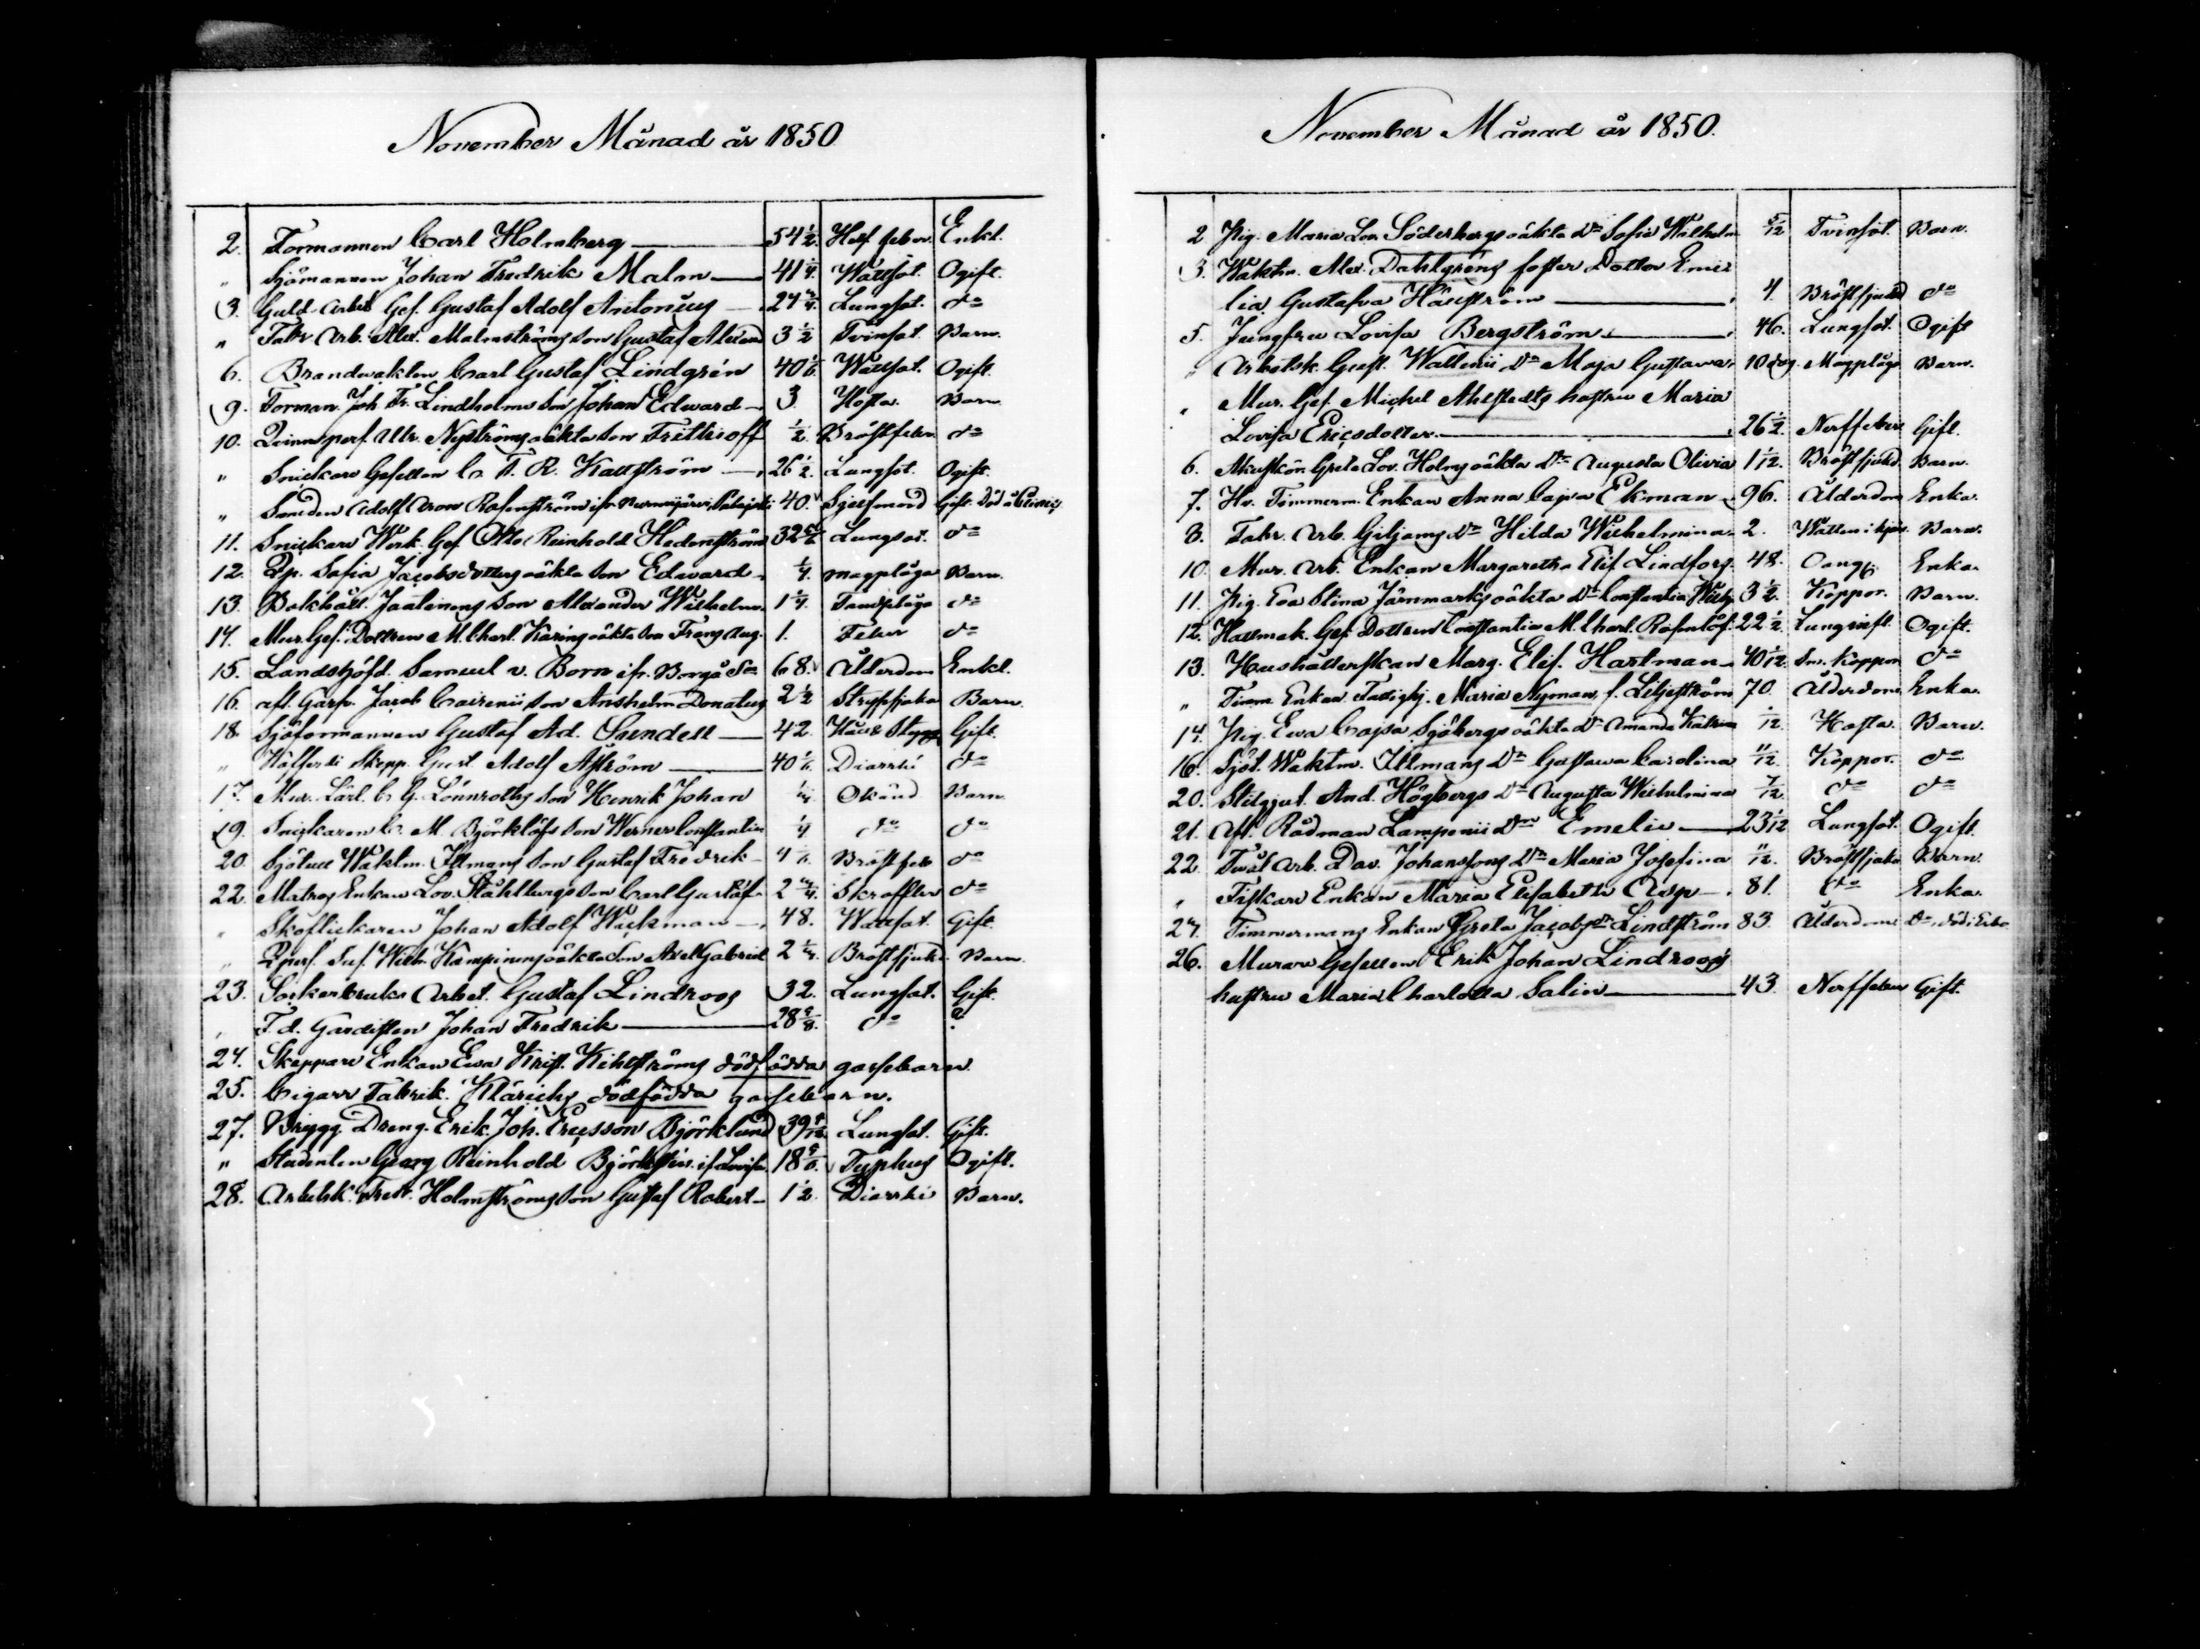 November Månad år 1850
2. Formannen Carl Holmberg — 54 1/2. Enkl.
" Sjömannen Johan Fredrik Malm — 41 Wattsot. Ogift.
3. Guld Arbet. Ges. Gustaf Adolf Antonius — 24 3/4. Lungsot. do
" Fabr. Arb. Alex. Malmströms Son Gustaf 3 1/2 Tvinsot Barn.
6. Brandwakten Carl Gustaf Lindgrén 40 Wattsot. Ogift.
9. Forman. Joh. Fr. Lindholms Son Johan Edward — 3. Hosta. Barn
10. Qvinnspers. Ulr. Nyströms oäkta Son Frithioff 1/2. Bröstfeber do
" Snickare Gesellen C. F. R. — 26 1/2 Lungsot. Ogift.
" Adolf Aron Rosenström ifr. Nurmijärvi 40. Sjelfmord Gift.
11. Snickare Werk. Ges. Otto Reinhold Hedenström 32 Lungsot. do
12. Qp. Sofia Jacobsdotters oäkta Son Edward — 1/4. magplåga Barn.
13. Bokhåll. Son Alexander Wilhelm 1 1/4. Tandplåga do
14. Mur. Ges. Dottren M. Charl. oäkta Son Frans Aug. 1. Feber do
15. Landshöfd. Samuel v. Born ifr. Borgå Sn 68. Ålderdom Enkl.
16. afl. Garfv. Jacob Son Anshelm Donatus 2 1/2 Strypsjuka Barn.
18. Sjöformannen Gustaf Ad. Sundell — 42. Gift.
" Skepp. Gust. Adolf Åström — 40 Diarrhé do
17. Mur. Lärl. C. G. Lönnroths Son Henrik Johan Okänd Barn.
19. Snickaren C. M. Björklöfs Son Werner Constantin 1/4 do do
20. Sjötull Waktm. Illmans Son Gustaf Fredrik — 4 Bröstfeb. do
22. Matros Enkan Lov. Ståhlbergs Son Carl Gustaf 2 3/4. Skrofler do
" Skoflickaren Johan Adolf Wickman — 48. Wattsot. Gift.
" Qpers. Wilh. oäkta Son Axel Gabriel 2 Bröstsjukd. Barn.
23. Sockerbruks Arbet. Gustaf Lindroos 32. Lungsot. Gift.
" F.d. Gardisten Johan Fredrik — 28 do ?
24. Skeppare Enkan Ewa Krist. Kihlströms dödfödda gossebarn.
25. Cigarr Fabrik. dödfödda gossebarn.
27. Brygg. Dreng. Erik Joh. Ericsson Björklund 39 Lungsot. Gift.
" Studenten Georg Reinhold ifr. Lovisa. 18 Typhus Ogift.
28. Arbetsk. Fredr. Holmströms Son Gustaf Robert — 1 1/2. Diarrhé Barn.
November Månad år 1850.
2 Pig. Maria Lov. Söderbergs oäkta Dr Sofia Wilhelm 5/12 Tvinsot. Barn.
3. Waktm. Alex. Dahlgréns foster Dotter Emi-
lia Gustafva Hällström — 4. Bröstsjukd do
5. Jungfru Lovisa Bergström — 46. Lungsot. Ogift
" Arbetsk. Gust. Wallenii Dr Maja Gustava 10 dag. Magplåga Barn.
" Mur. Ges. Michel Ahlstedts hustru Maria
Lovisa Ericsdotter — 26 1/2 Nerffeber Gift.
6. Greta Lov. Holms oäkta Dr Augusta Olivia 1 1/12. Bröstsjukd. Barn.
7. Hr. Timmerm. Enkan Anna Cajsa Ekman — 96. Ålderdom Enka.
8. Fabr. Arb. Dr Hilda Wilhelmina 2. Barn.
10. Mur. Arb. Enkan Margaretha Elis. Lindfors 48. Enka.
11. Pig. Eva Stina Järnmarks oäkta Dr Constantia 3 1/2 Koppor. Barn.
12. Hattmak. Ges. Dottren Constantia M. Charl. Rosenlöf. 22 1/2. Lunginfl. Ogift.
13. Hushållerskan Marg. Elis. Hartman — 40 Koppor do
" Timm. Enkan Maria Nyman f. Liljeström 70. Ålderdom. Enka.
14. Pig. Ewa Cajsa Sjöbergs oäkta Dr Amanda 1/12. Hosta. Barn.
16. Sjöt. Waktm. Illmans Dr Gustawa Carolina 11/12. Koppor. do
20. Stilgjut. And. Högbergs Dr Augusta Wilhelmina 7/12. do do
21. Afl. Rådman Lamponii Dr Emelie — 23 1/12 Lungsot. Ogift.
22. Arb. Dav. Johanssons Dr Maria Josefina 11/12. Bröstsjukd. Barn.
" Fiskare Enkan Maria Elisabeth Asp — 81. do Enka.
24. Timmermans Enkan Greta Jacobsdr Lindström 83. Ålderdom
26. Murare Gesellen Erik Johan Lindroos
hustru Maria Charlotta Salin — 43. Nerffeber Gift.